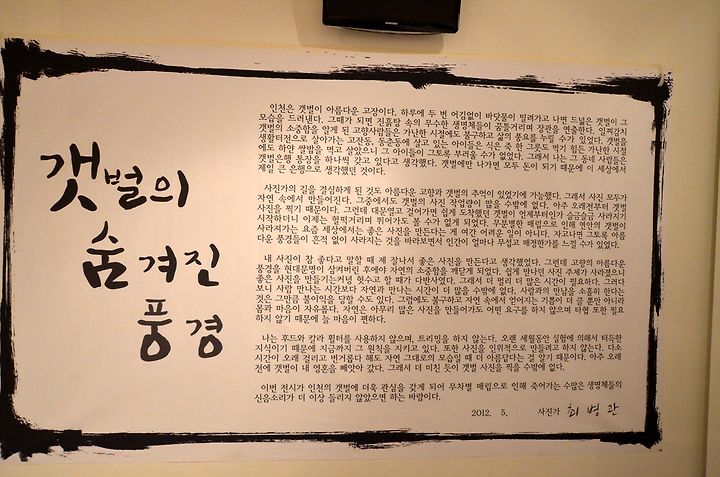 갯벌의
숨겨진
풍경
인천은 갯벌이 아름다운 고장이다. 하루에 두 번 어김없이 바닷물이 밀려가고 나면 드넓은 갯벌이 그
모습을 드러낸다. 그때가 되면 진흙탕 속의 무수한 생명체들이 꿈틀거리며 장관을 연출한다. 일찌감치
갯벌의 소중함을 알게 된 고향사람들은 가난한 시절에도 불구하고 삶의 풍요를 누릴 수가 있었다. 갯벌을
생활터전으로 살아가는 고잔동, 동춘동에 살고 있는 아이들은 식은 죽 한 그릇도 먹기 힘든 가난한 시절
에도 하얀 쌀밥을 먹고 살았으니 그 아이들이 그토록 부러울 수가 없었다. 그래서 나는 그 동네 사람들은
갯벌은행 통장을 하나씩 갖고 있다고 생각했다. 갯벌에만 나가면 모두 돈이 되기 때문에 이 세상에서
제일 큰 은행으로 생각했던 것이다.
사진가의 길을 결심하게 된 것도 아름다운 고향과 갯벌의 추억이 있었기에 가능했다. 그래서 사진 모두가
자연 속에서 만들어진다. 그중에서도 갯벌의 사진 작업량이 많을 수밖에 없다. 아주 오래전부터 갯벌
사진을 찍기 때문이다. 그런데 대문열고 걸어가면 쉽게 도착했던 갯벌이 언제부터인가 슬금슬금 사라지기
시작하더니 이제는 헐떡거리며 뛰어가도 볼 수가 없게 되었다. 무분별한 매립으로 인해 연안의 갯벌이
사라져가는 요즘 세상에서는 좋은 사진을 만든다는 게 여간 어려운 일이 아니다. 자고나면 그토록 아름
다운 풍경들이 흔적 없이 사라지는 것을 바라보면서 인간이 얼마나 무섭고 매정한가를 느낄 수가 있었다.
내 사진이 참 좋다고 말할 때 제 잘나서 좋은 사진을 만든다고 생각했었다. 그런데 고향의 아름다운
풍경을 현대문명이 삼켜버린 후에야 자연의 소중함을 깨닫게 되었다. 쉽게 만나던 사진 주제가 사라졌으니
좋은 사진을 만들기는커녕 헛수고 할 때가 다반사였다. 그래서 더 멀리 더 많은 시간이 필요하다. 그러다
보니 사람 만나는 시간보다 자연과 만나는 시간이 더 많을 수밖에 없다. 사람과의 만남을 소홀히 한다는
것은 그만큼 불이익을 당할 수도 있다. 그럼에도 불구하고 자연 속에서 얻어지는 기쁨이 더 클 뿐만 아니라
몸과 마음이 자유롭다. 자연은 아무리 많은 사진을 만들어가도 어떤 요구를 하지 않으며 타협 또한 필요
하지 않기 때문에 늘 마음이 편하다.
나는 후드와 칼라 휠터를 사용하지 않으며, 트리밍을 하지 않는다. 오랜 세월동안 실험에 의해서 터득한
지식이기 때문에 지금까지 그 원칙을 지키고 있다. 또한 사진을 인위적으로 만들려고 하지 않는다. 다소
시간이 오래 걸리고 번거롭다 해도 자연 그대로의 모습일 때 더 아름답다는 걸 알기 때문이다. 아주 오래
전에 갯벌이 내 영혼을 빼앗아 갔다. 그래서 더 미친 듯이 갯벌 사진을 찍을 수밖에 없다.
이번 전시가 인천의 갯벌에 더욱 관심을 갖게 되어 무차별 매립으로 인해 죽어가는 수많은 생명체들의
신음소리가 더 이상 들리지 않았으면 하는 바램이다.
2012. 5. 사진가 최병관